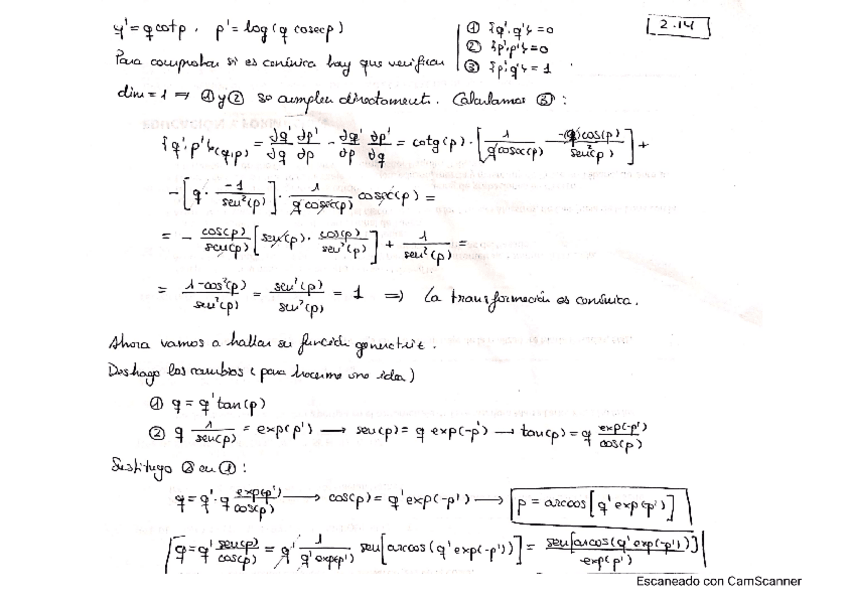 y' = q cot p . p' = log(q cosec p)
① {q', q'} = 0
② {p', p'} = 0
③ {p', q'} = 1
2.14
Para comprobar si es canónica hay que verificar
dim = 1 ⇒ ① y ② se cumplen directament. Calculamos ③ :
{q', p'}(q,p) = ∂q'/∂q ∂p'/∂p - ∂q'/∂p ∂p'/∂q = cotg(p) · [1/(q cosec(p)) · -(q)cos(p)/sen²(p)] +
- [q · -1/sen²(p)] · 1/(q cosec(p)) cosec(p) =
= - cos(p)/sen(p) [sen(p) · cos(p)/sen²(p)] + 1/sen²(p) =
= (1-cos²(p))/sen²(p) = sen²(p)/sen²(p) = 1 ⇒ La transformación es canónica.
Ahora vamos a hallar su función generatriz.
Deshago los cambios (para hacerme una idea)
① q = q' tan(p)
② q 1/sen(p) = exp(p') → sen(p) = q exp(-p') → tan(p) = q exp(-p')/cos(p)
Sustituyo ② en ① :
q = q' · q exp(p')/cos(p) → cos(p) = q' exp(-p') → p = arcos[q' exp(p')]
q = q' sen(p)/cos(p) = q' 1/(q' exp(p')) sen[arcos(q' exp(-p'))] = sen[arcos(q' exp(-p'))]/exp(p')
Escaneado con CamScanner